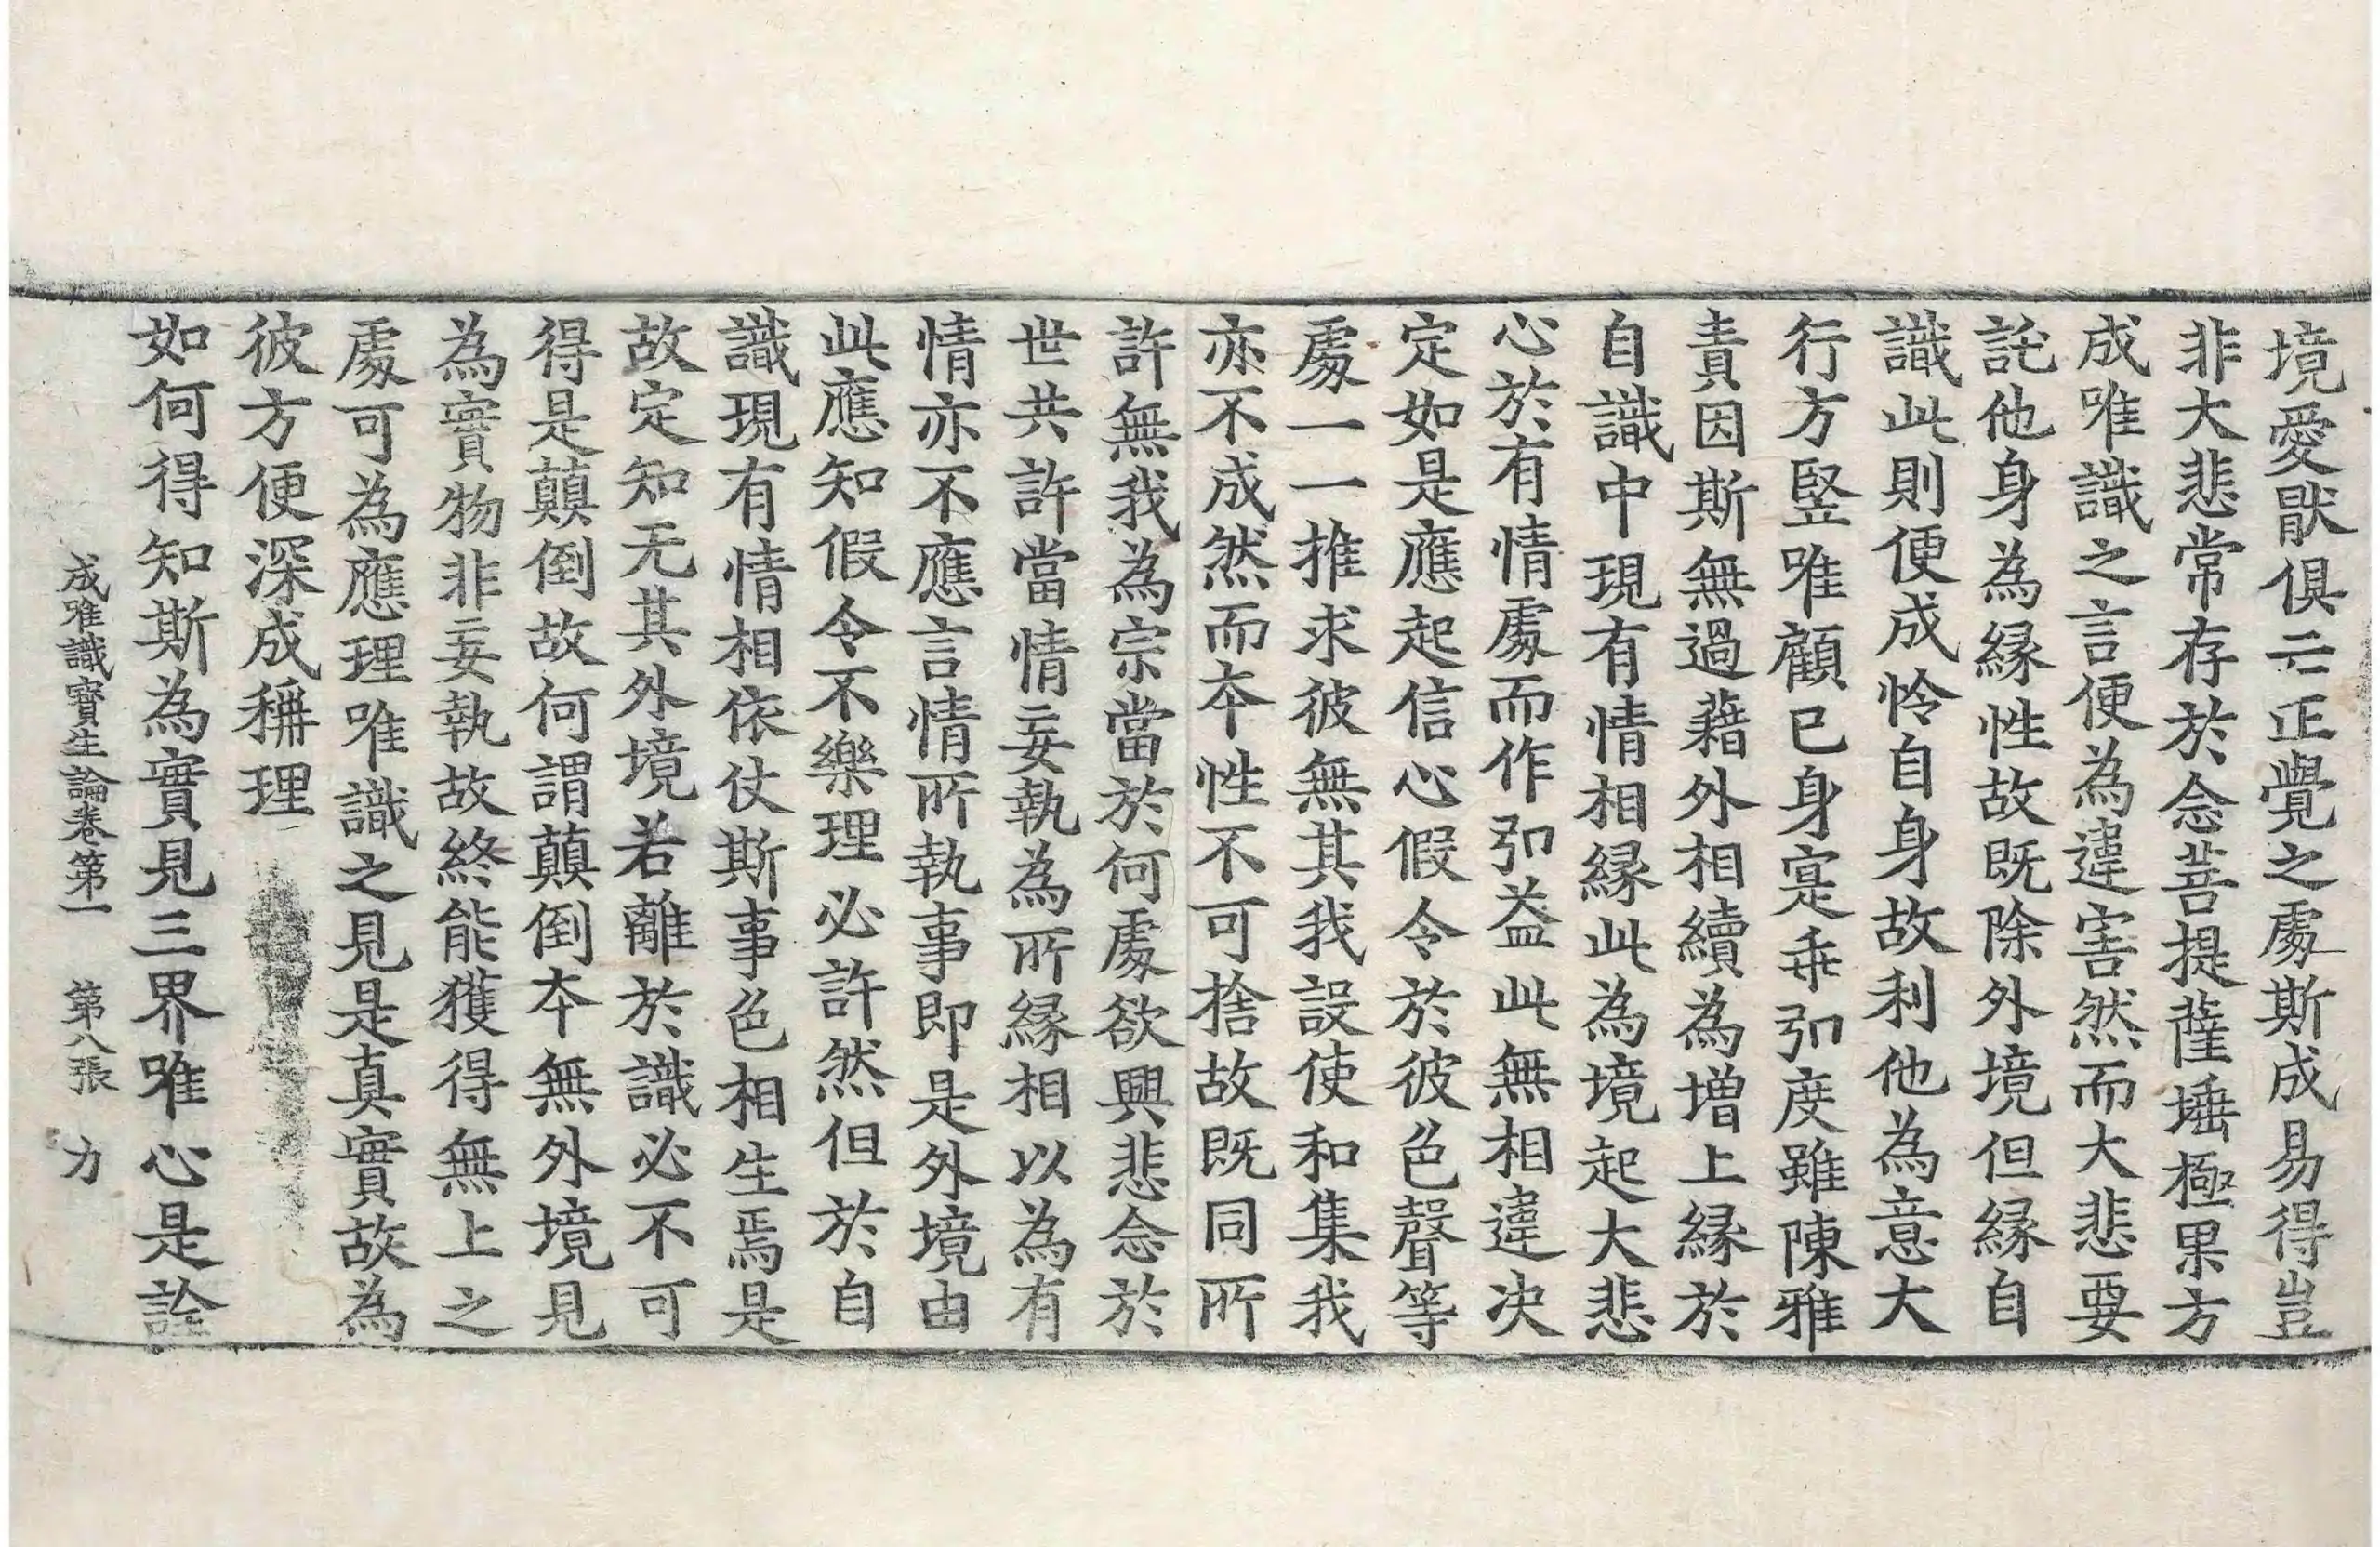 境愛猒俱亡正覺之處斯成易得豈
非大悲常存於念菩提薩埵極果方
成唯識之言便為違害然而大悲要
託他身為緣性故既除外境但緣自
識此則便成怜自身故利他為意大
行方竪唯顧已身寔乖引度雖陳雅
責因斯無過藉外相續為增上緣於
自識中現有情相緣此為境起大悲
心於有情處而作引益此無相違决
定如是應起信心假令於彼色聲等
處一一推求彼無其我設使和集我
亦不成然而本性不可捨故既同所
許無我為宗當於何處欲興悲念於
世共許當情妄執為所緣相以為有
情亦不應言情所執事即是外境由
此應知假令不樂理必許然但於自
識現有情相依仗斯事色相生焉是
故定知无其外境若離於識必不可
得是顛倒故何謂顛倒本無外境見
為實物非妄執故終能獲得無上之
處可為應理唯識之見是真實故為
彼方便深成稱理
如何得知斯為實見三界唯心是詮
成唯識寶生論卷第一 第八張 力